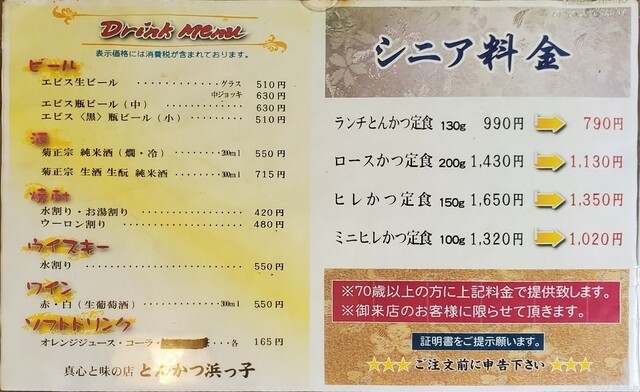 Drink Menu
表示価格には消費税が含まれております。
ビール
エビス生ビール ‥‥‥‥‥‥ グラス 510円
中ジョッキ 630円
エビス瓶ビール(中) ‥‥‥‥‥‥ 630円
エビス〈黒〉瓶ビール(小) ‥‥‥‥ 510円
酒
菊正宗 純米酒(燗・冷) ‥‥‥‥ 200ml 550円
菊正宗 生酒 生酛 純米酒 ‥‥‥‥ 300ml 715円
焼酎
水割り・お湯割り ‥‥‥‥‥‥ 420円
ウーロン割り ‥‥‥‥‥‥ 480円
ウイスキー
水割り ‥‥‥‥‥‥ 550円
ワイン
赤・白(生葡萄酒) ‥‥‥‥ 300ml 550円
ソフトドリンク
オレンジジュース・コーラ・ 各 165円
真心と味の店 とんかつ浜っ子
シニア料金
ランチとんかつ定食 130g 990円 790円
ロースかつ定食 200g 1,430円 1,130円
ヒレかつ定食 150g 1,650円 1,350円
ミニヒレかつ定食 100g 1,320円 1,020円
※70歳以上の方に上記料金で提供致します。
※御来店のお客様に限らせて頂きます。
証明書をご提示願います。
★★★ご注文前に申告下さい★★★